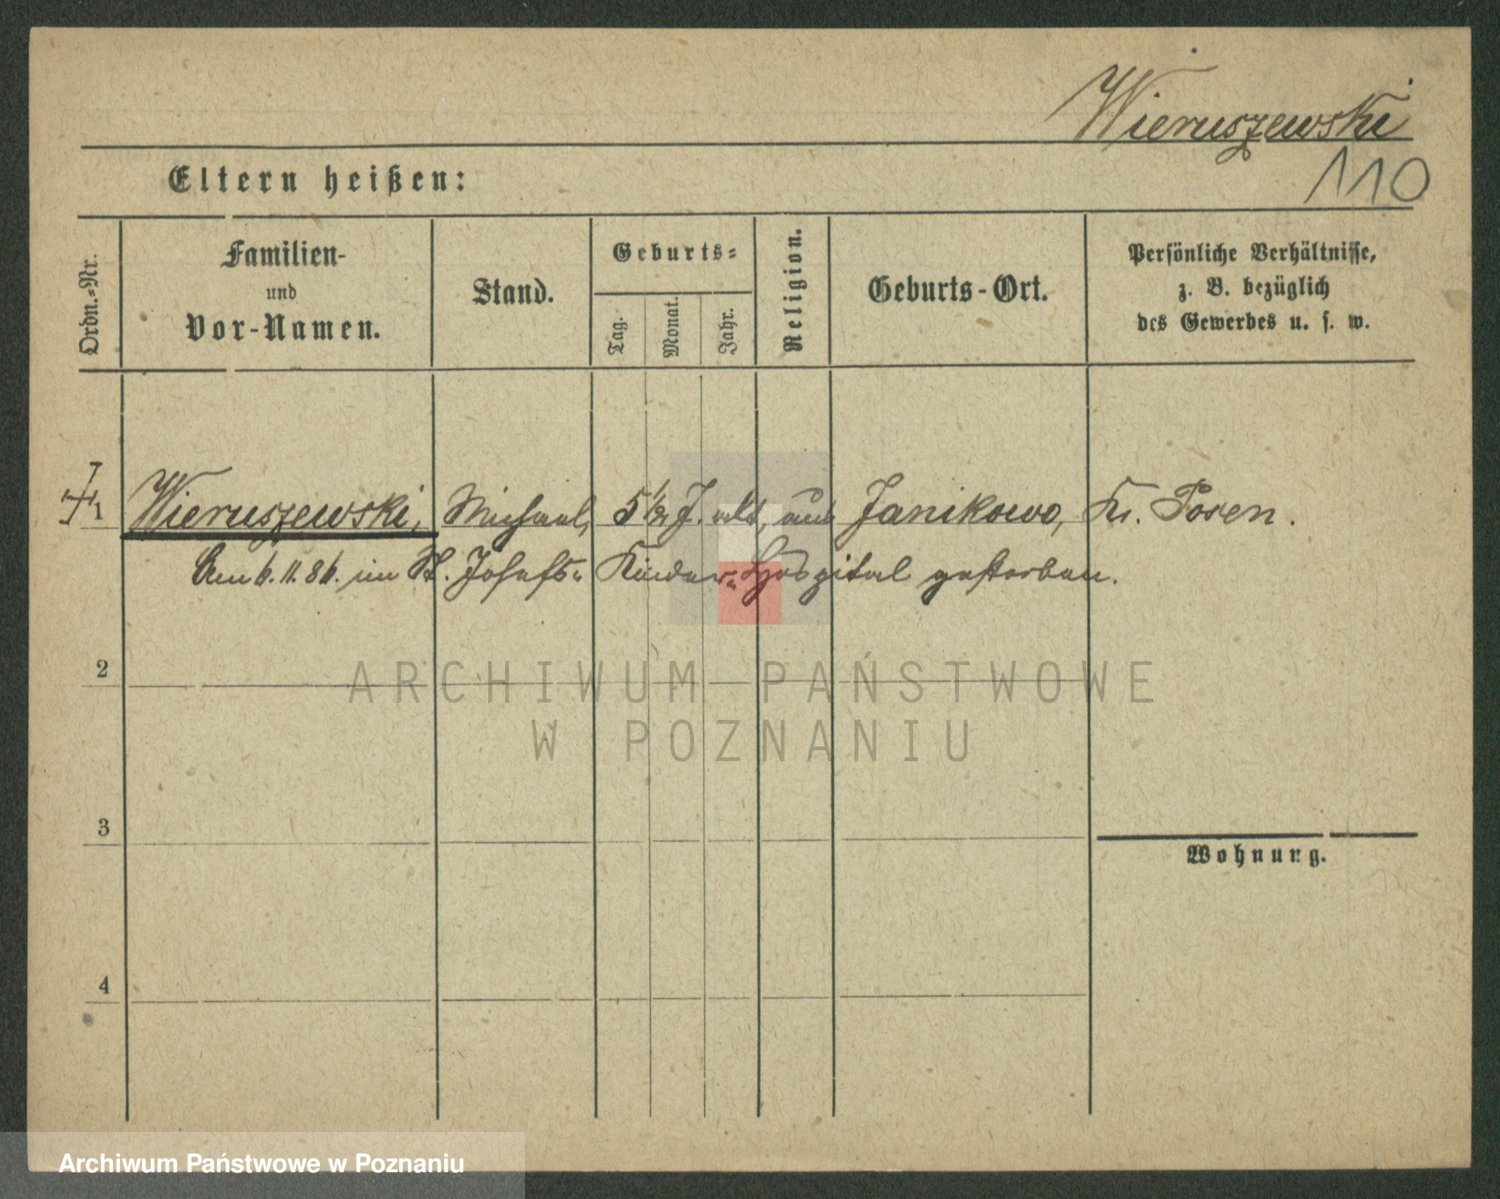 Wieruszewski
110
Eltern heißen:
Ordn.-Nr.
Familien-
und
Vor-Namen.
Stand.
Geburts-
Tag.
Monat.
Jahr.
Religion.
Geburts-Ort.
Persönliche Verhältnisse,
z. B. bezüglich
des Gewerbes u. s. w.
1 Wieruszewski, Michael, 5 1/2 J. alt, aus Janikowo, Kr. Posen.
Am 6. 11. 86. im St. Josefs- Kinder-Hospital gestorben.
2
ARCHIWUM PAŃSTWOWE
W POZNANIU
3
Wohnung.
4
Archiwum Państwowe w Poznaniu